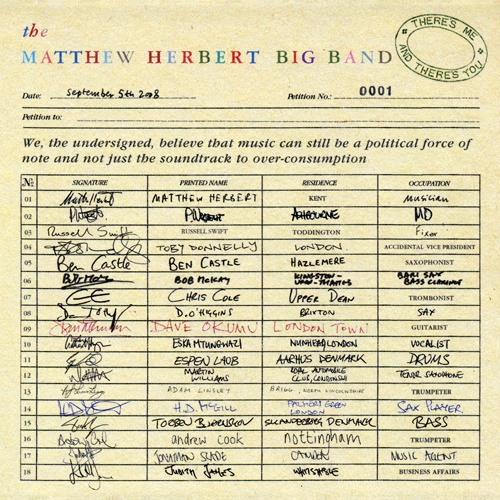 the
MATTHEW HERBERT BIG BAND
THERE'S ME AND THERE'S YOU
Date: September 5th 2008 Petition No.: 0001
Petition to:
We, the undersigned, believe that music can still be a political force of
note and not just the soundtrack to over-consumption
No SIGNATURE PRINTED NAME RESIDENCE OCCUPATION
01 MATTHEW HERBERT KENT Musician
02 P. Wright ASHBOURNE MD
03 Russell Swift RUSSELL SWIFT TODDINGTON Fixer
04 TOBY DONNELLY LONDON. ACCIDENTAL VICE PRESIDENT
05 Ben Castle BEN CASTLE HAZLEMERE SAXOPHONIST
06 BOB McKAY KINGSTON-UPON-THAMES BARI SAX BASS CLARINET
07 CHRIS COLE UPPER DEAN TROMBONIST
08 D. O'HIGGINS BRIXTON SAX
09 DAVE OKUMU LONDON TOWN GUITARIST
10 ESKA MTUNGWAZI NUNHEAD LONDON VOCALIST
11 ESPEN LAUB AARHUS DENMARK DRUMS
12 MARTIN WILLIAMS ROYAL AUTOMOBILE CLUB, LONDON TENOR SAXOPHONE
13 ADAM LINSLEY BRIGG, NORTH LINCOLNSHIRE TRUMPETER
14 H.D. McGILL PALMERS GREEN LONDON SAX PLAYER
15 SKANDERBORG DENMARK BASS
16 andrew cook nottingham TRUMPETER
17 JONATHAN SLADE CANADA MUSIC AGENT
18 JUDITH JAMES WHITSTABLE BUSINESS AFFAIRS